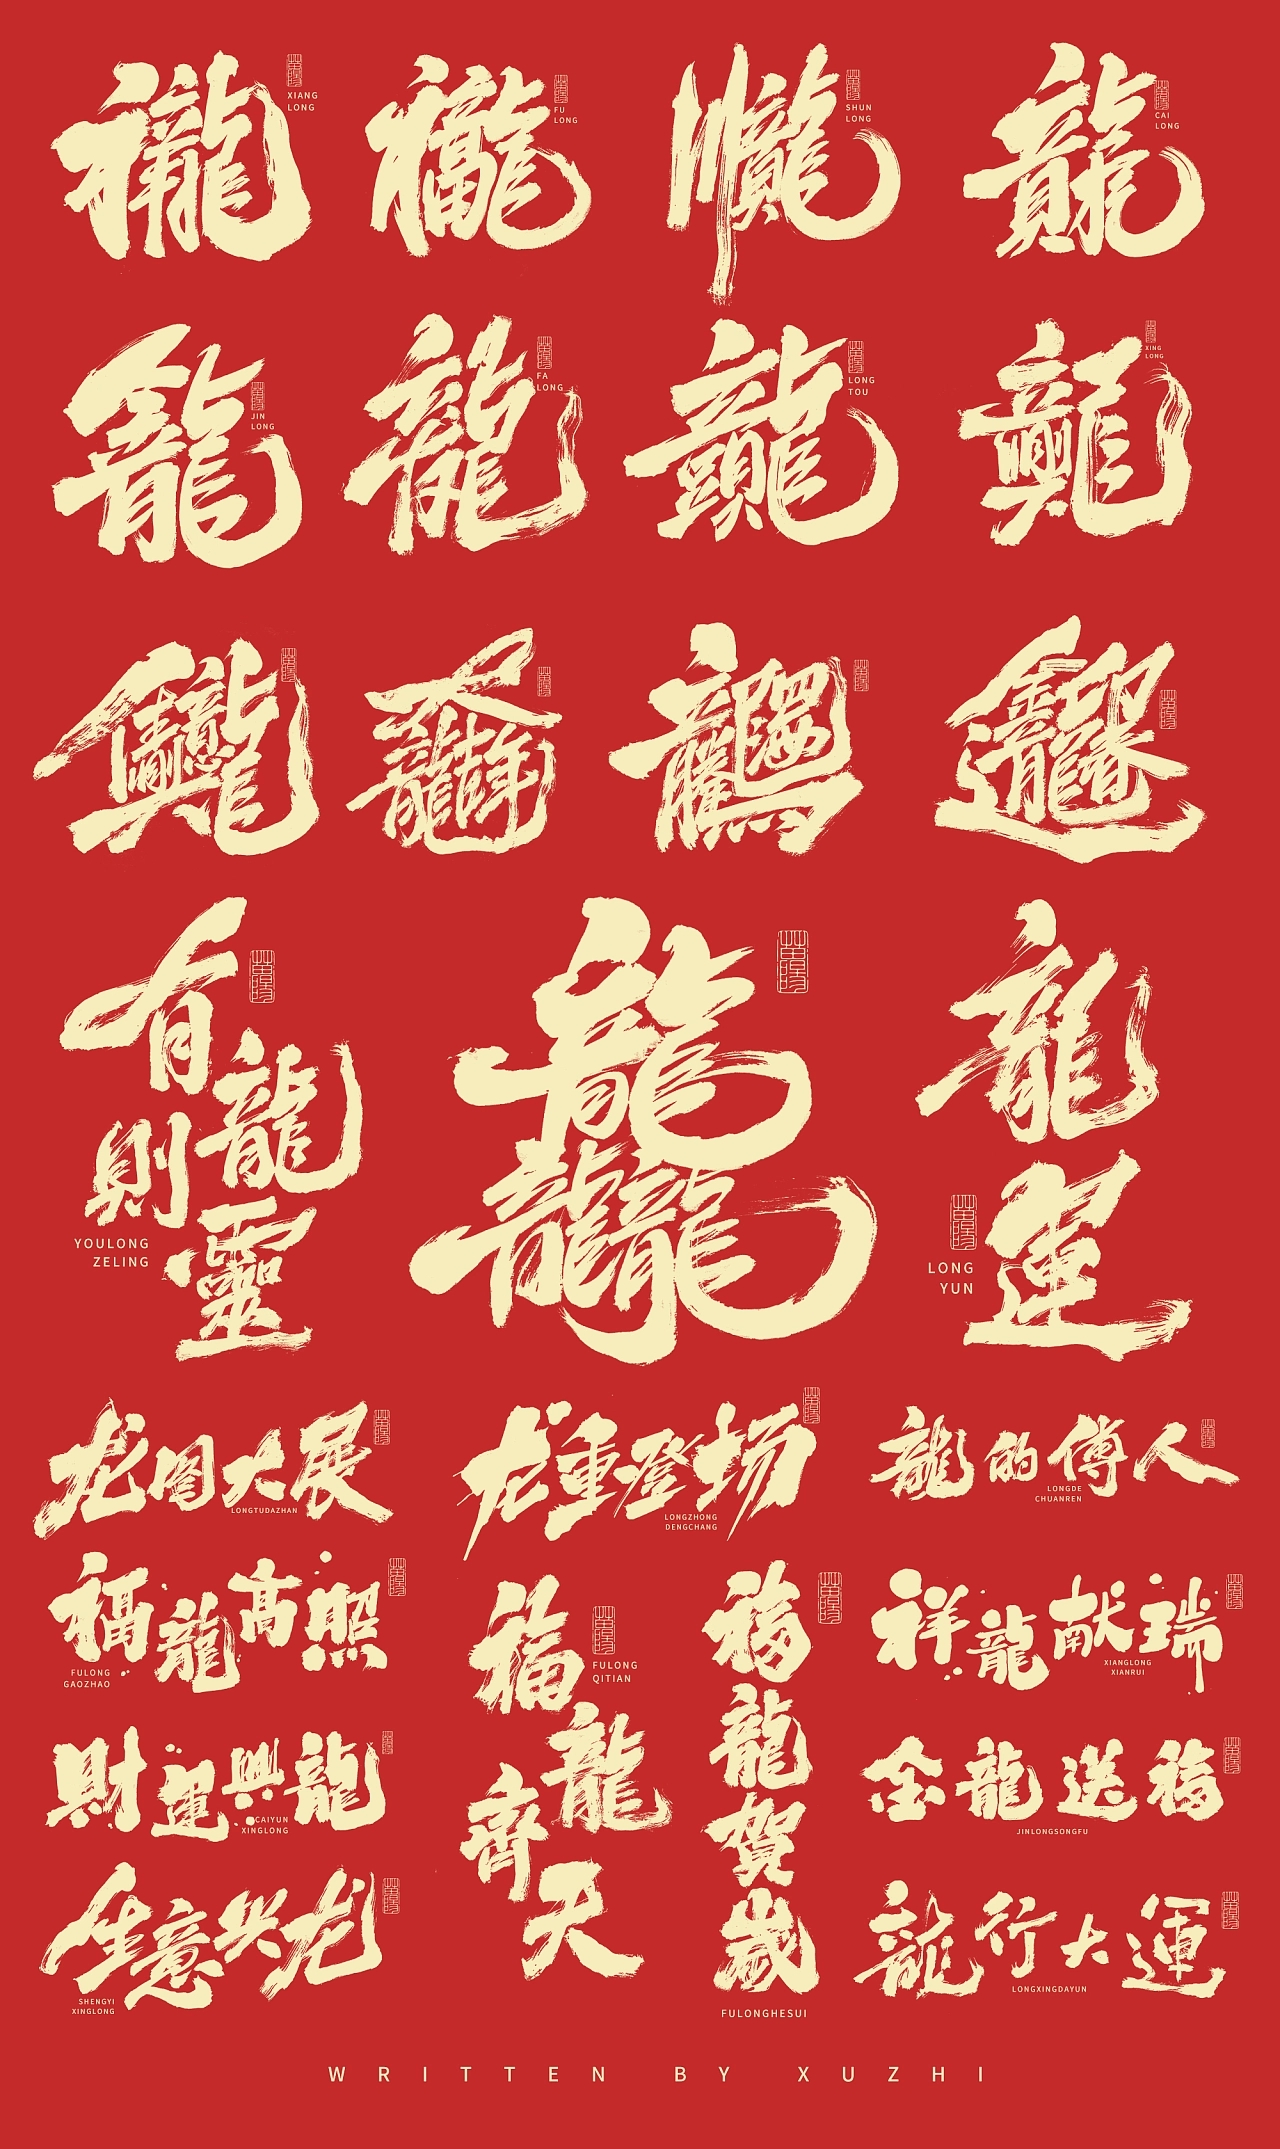 祥龍
XIANG
LONG
福龍
FU
LONG
順龍
SHUN
LONG
財龍
CAI
LONG
金龍
JIN
LONG
發龍
FA
LONG
龍頭
LONG
TOU
興龍
XING
LONG
生意興龍
金龍迎春
有龍則靈
YOULONG
ZELING
龘
龍運
LONG
YUN
龙图大展
LONGTUDAZHAN
龙重登场
LONGZHONG
DENGCHANG
龍的傳人
LONGDE
CHUANREN
福龍高照
FULONG
GAOZHAO
福龍齊天
FULONG
QITIAN
福龍賀歲
FULONGHESUI
祥龍献瑞
XIANGLONG
XIANRUI
財運興龍
CAIYUN
XINGLONG
金龍送福
JINLONGSONGFU
生意兴龙
SHENGYI
XINGLONG
龍行大運
LONGXINGDAYUN
WRITTEN BY XUZHI